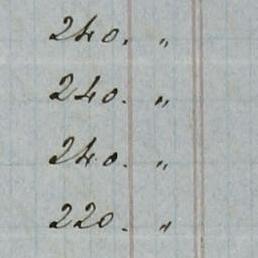 240. "
240. "
240. "
220. "